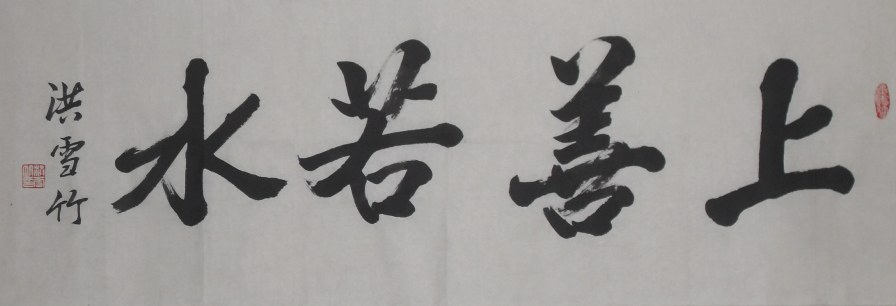 上善若水
洪雪竹